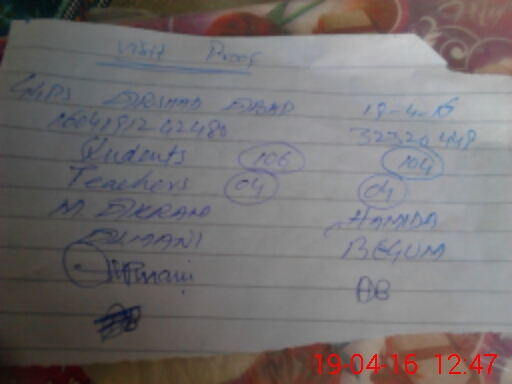 Visit Proof
GGPS ARSHAD ABAD 19-4-16
1604191242480 32320449
Students 106 104
Teachers 04 04
M AKRAM HAMIDA
ALMANI BEGUM
HB
19-04-16 12:47